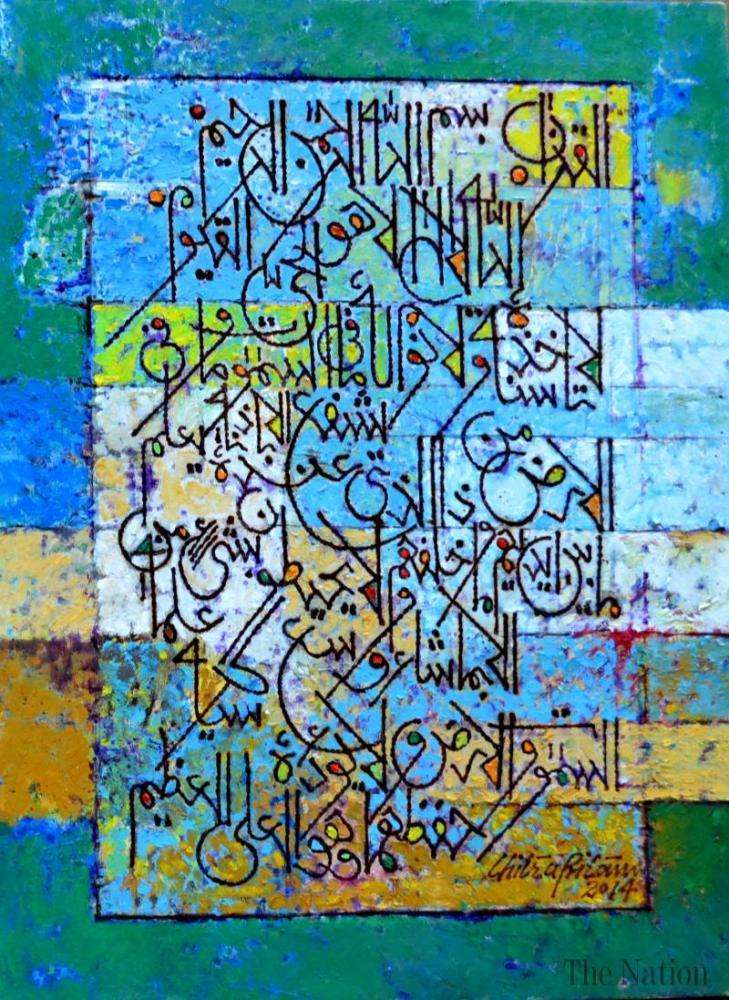 بسم الله الرحمن الرحيم
الله لا اله الا هو الحي القيوم
لا تأخذه سنة ولا نوم له ما في السموات وما في
الارض من ذا الذي يشفع عنده الا باذنه يعلم
ما بين ايديهم وما خلفهم ولا يحيطون بشيء من علمه
الا بما شاء وسع كرسيه
السموت والارض ولا يؤده حفظهما وهو العلي العظيم
Chitra Pritam
2014
The Nation